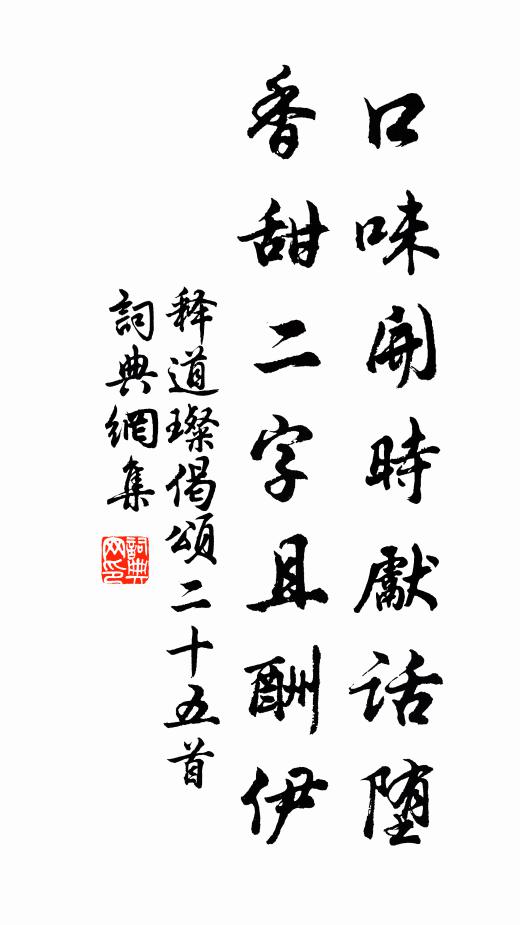 口味開時獻話堕
香甜二字且酬伊
释道璨偈頌二十五首
詞典網集
詞典網印